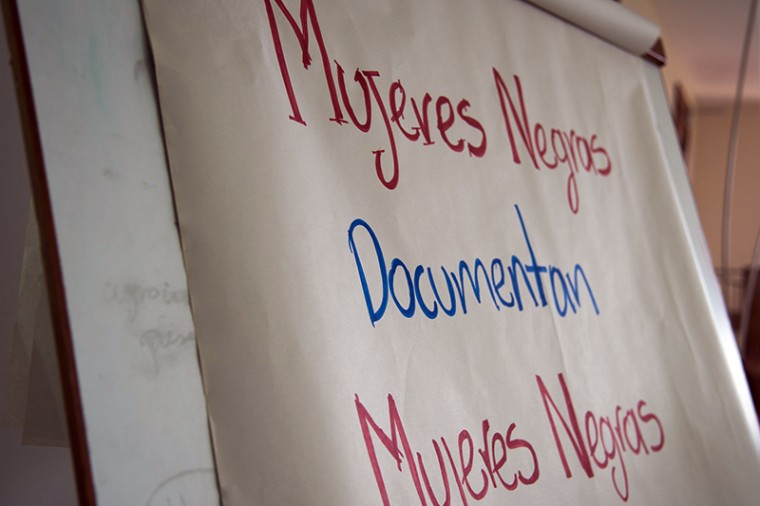 Mujeres Negras
Documentan
Mujeres Negras